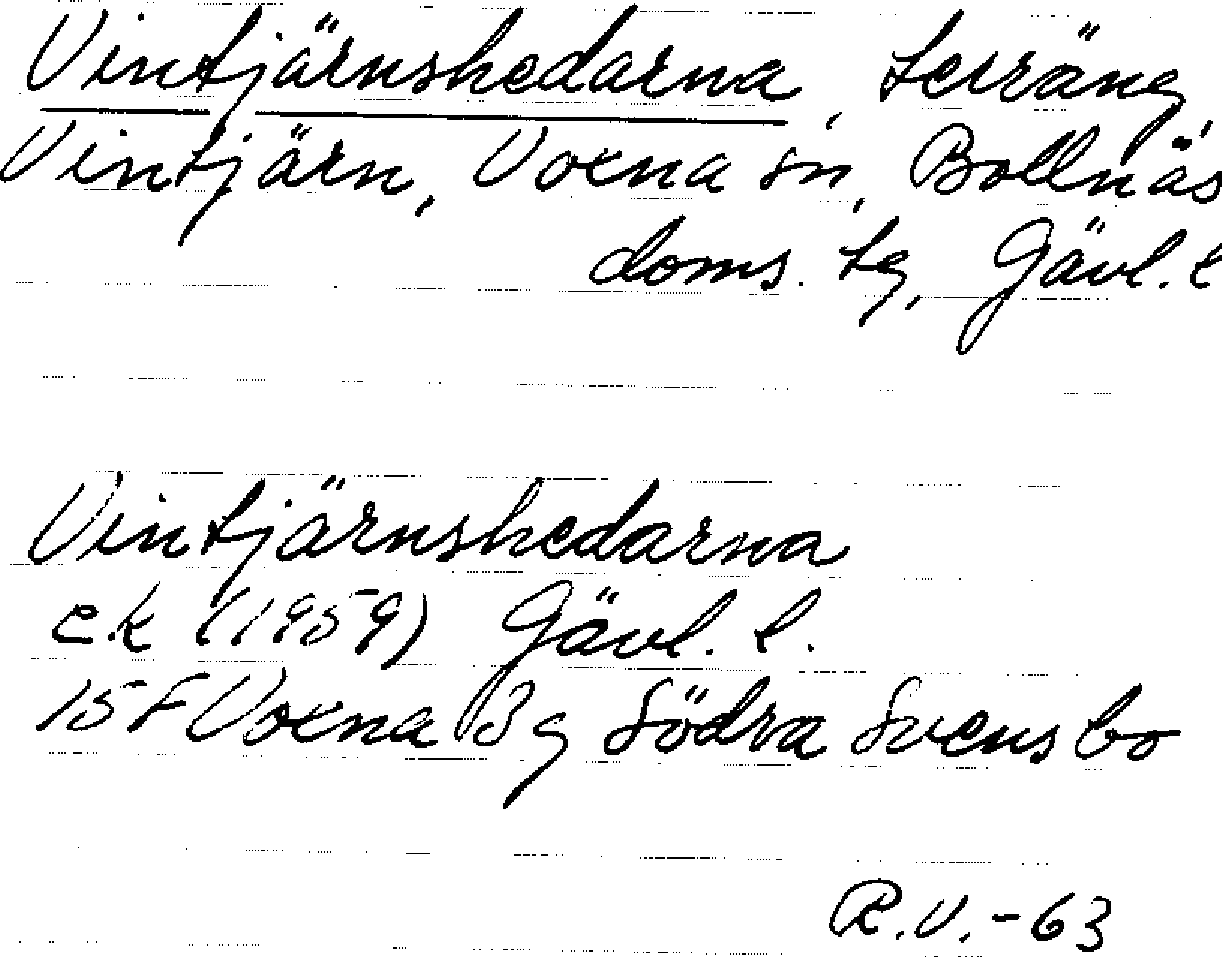 Vintjärnshedarna, terräng,
Vintjärn, Voxna sn, Bollnäs
doms. tg, Gävl. l
Vintjärnshedarna
e.k (1959) Gävl. l.
15 F Voxna 3 g Södra Svensbo
R.V. - 63